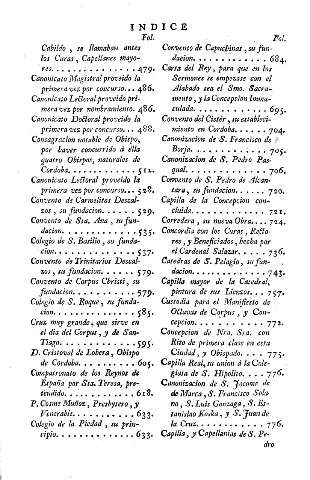 INDICE
Fol.
Cabildo, se llamaban antes
los Curas, Capellanes mayo-
res. . . . . . . . . . . 479.
Canonicato Magistral proveído la
primera vez por concurso. . . 486.
Canonicato Lectoral proveído pri-
mera vez por nombramiento. 486.
Canonicato Doctoral proveído la
primera vez por concurso. . . 488.
Consagracion notable de Obispo,
por haver concurrido à ella
quatro Obispos, naturales de
Cordoba. . . . . . . . . 512.
Canonicato Lectoral proveído la
primera vez por concurso. . . 528.
Convento de Carmelitas Descal-
zos, su fundacion. . . . . . 529.
Convento de Sta. Ana, su fun-
dacion. . . . . . . . . . 535.
Colegio de S. Basilio, su funda-
cion. . . . . . . . . . . 533.
Convento de Trinitarios Descal-
zos, su fundacion. . . . . . 579.
Convento de Corpus Christi, su
fundacion. . . . . . . . . 579.
Colegio de S. Roque, su funda-
cion. . . . . . . . . . . 585.
Cruz muy grande, que sirve en
el dia del Corpus, y de San-
Tiago. . . . . . . . . . 595.
D. Cristoval de Lobera, Obispo
de Cordoba. . . . . . . . 605.
Compatronato de los Reynos de
España por Sta. Teresa, pre-
tendido. . . . . . . . . 618.
P. Cosme Muñoz, Presbytero, y
Venerable. . . . . . . . 633.
Colegio de la Piedad, su prin-
cipio. . . . . . . . . . 633.
Fol.
Convento de Capuchinas, su fun-
dacion. . . . . . . . . . 684.
Carta del Rey, para que en los
Sermones se empezase con el
Alabado sea el Smo. Sacra-
mento, y la Concepcion Imma-
culada. . . . . . . . . . 695.
Convento del Cistér, su estableci-
miento en Cordoba. . . . . 704.
Canonizacion de S. Francisco de
Borja. . . . . . . . . . 705.
Canonizacion de S. Pedro Pas-
qual. . . . . . . . . . . 706.
Convento de S. Pedro de Alcan-
tara, su fundacion. . . . . 720.
Capilla de la Concepcion con-
cluida. . . . . . . . . . 721.
Corredera, su nueva Obra. . . 724.
Concordia con los Curas, Recto-
res, y Beneficiados, hecha por
el Cardenal Salazar. . . . . 736.
Corredras de S. Pelagio, su fun-
dacion. . . . . . . . . . 743.
Capilla mayor de la Catedral,
pintura de sus Lienzos. . . . 757.
Custodia para el Manifiesto de
Octavas de Corpus, y Con-
cepcion. . . . . . . . . . 772.
Concepcion de Nra. Sra. con
Rito de primera clase en esta
Ciudad, y Obispado. . . . . 775.
Capilla Real, su union à la Cole-
giata de S. Hipolito. . . . 776.
Canonizacion de S. Jacome de
de Marca, S. Francisco Sola-
no, S. Luis Gonzaga, S. Es-
tanislao Koska, y S. Juan de
la Cruz. . . . . . . . . . 776.
Capilla, y Capellanías de S. Pe-
dro